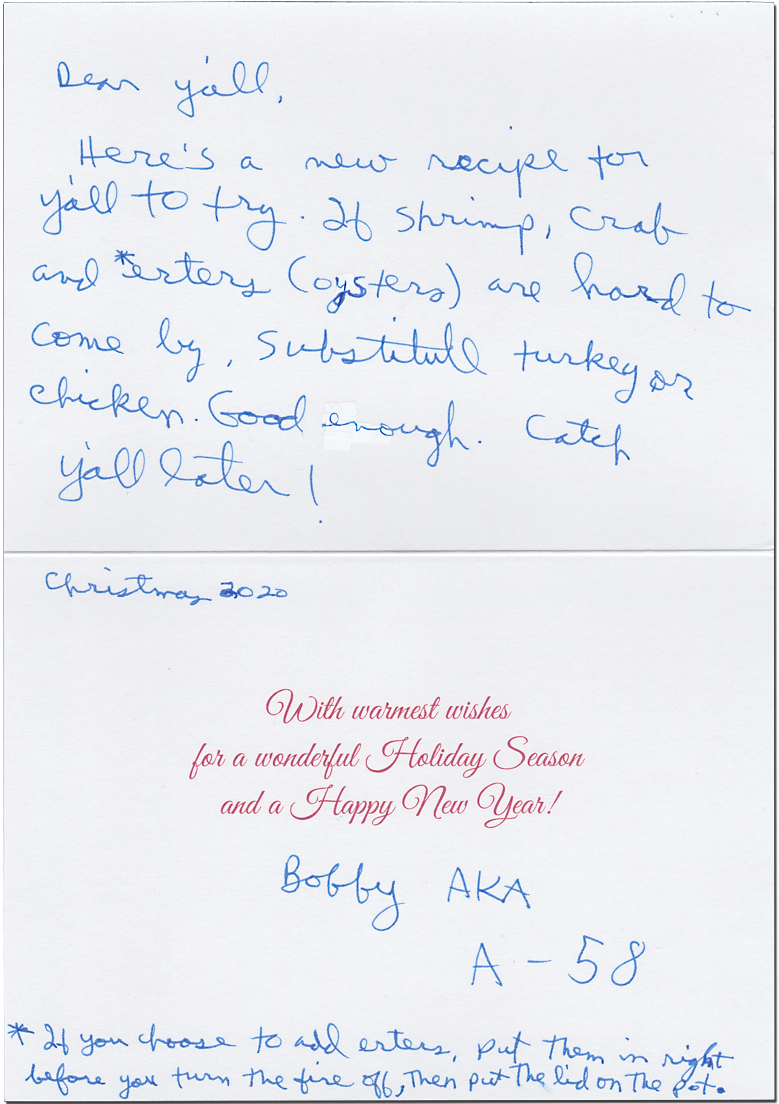 Dear y'all,
Here's a new recipe for
y'all to try. If shrimp, crab
and *erters (oysters) are hard to
come by, substitute turkey or
chicken. Good enough. Catch
y'all later!
Christmas 2020
With warmest wishes
for a wonderful Holiday Season
and a Happy New Year!
Bobby AKA
A - 58
* If you choose to add erters, put them in right
before you turn the fire off, then put the lid on the pot.